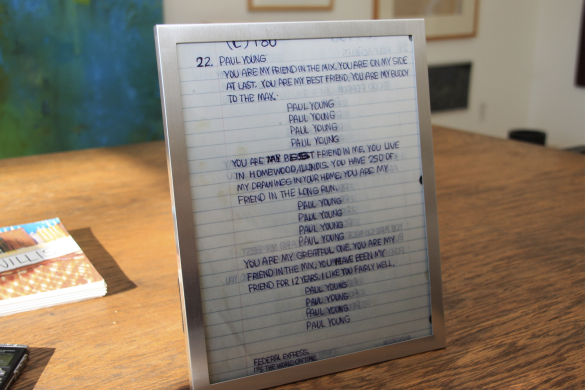 (C) 180
22. PAUL YOUNG
YOU ARE MY FRIEND IN THE MIX. YOU ARE ON MY SIDE
AT LAST. YOU ARE MY BEST FRIEND. YOU ARE MY BUDDY
TO THE MAX.
PAUL YOUNG
PAUL YOUNG
PAUL YOUNG
PAUL YOUNG
YOU ARE BEST FRIEND IN ME. YOU LIVE
IN HOMEWOOD, ILLINOIS. YOU HAVE 250 OF
MY DRAWINGS IN YOUR HOME. YOU ARE MY
FRIEND IN THE LONG RUN.
PAUL YOUNG
PAUL YOUNG
PAUL YOUNG
PAUL YOUNG
YOU ARE MY GREATFUL ONE. YOU ARE MY
FRIEND IN THE MIX. YOU HAVE BEEN MY
FRIEND FOR 12 YEARS. I LIKE YOU FAIRLY WELL.
PAUL YOUNG
PAUL YOUNG
PAUL YOUNG
PAUL YOUNG
FEDERAL EXPRESS,
IT'S THE WORLD ON TIME
VILLE